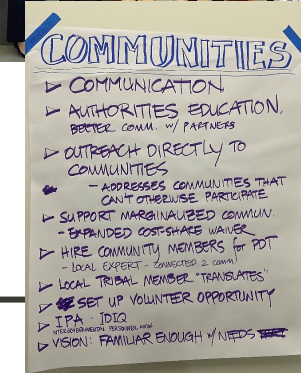 COMMUNITIES
COMMUNICATION
AUTHORITIES EDUCATION.
BETTER COMM. W/ PARTNERS
OUTREACH DIRECTLY TO
COMMUNITIES
- ADDRESSES COMMUNITIES THAT
CAN'T OTHERWISE PARTICIPATE
SUPPORT MARGINALIZED COMMUN.
- EXPANDED COST-SHARE WAIVER
HIRE COMMUNITY MEMBERS for PDT
- LOCAL EXPERT - CONNECTED 2 comm
LOCAL TRIBAL MEMBER "TRANSLATES"
SET UP VOLUNTEER OPPORTUNITY
IPA - IDIQ
INTERGOVERNMENTAL PERSONNEL
VISION: FAMILIAR ENOUGH w/ NEEDS